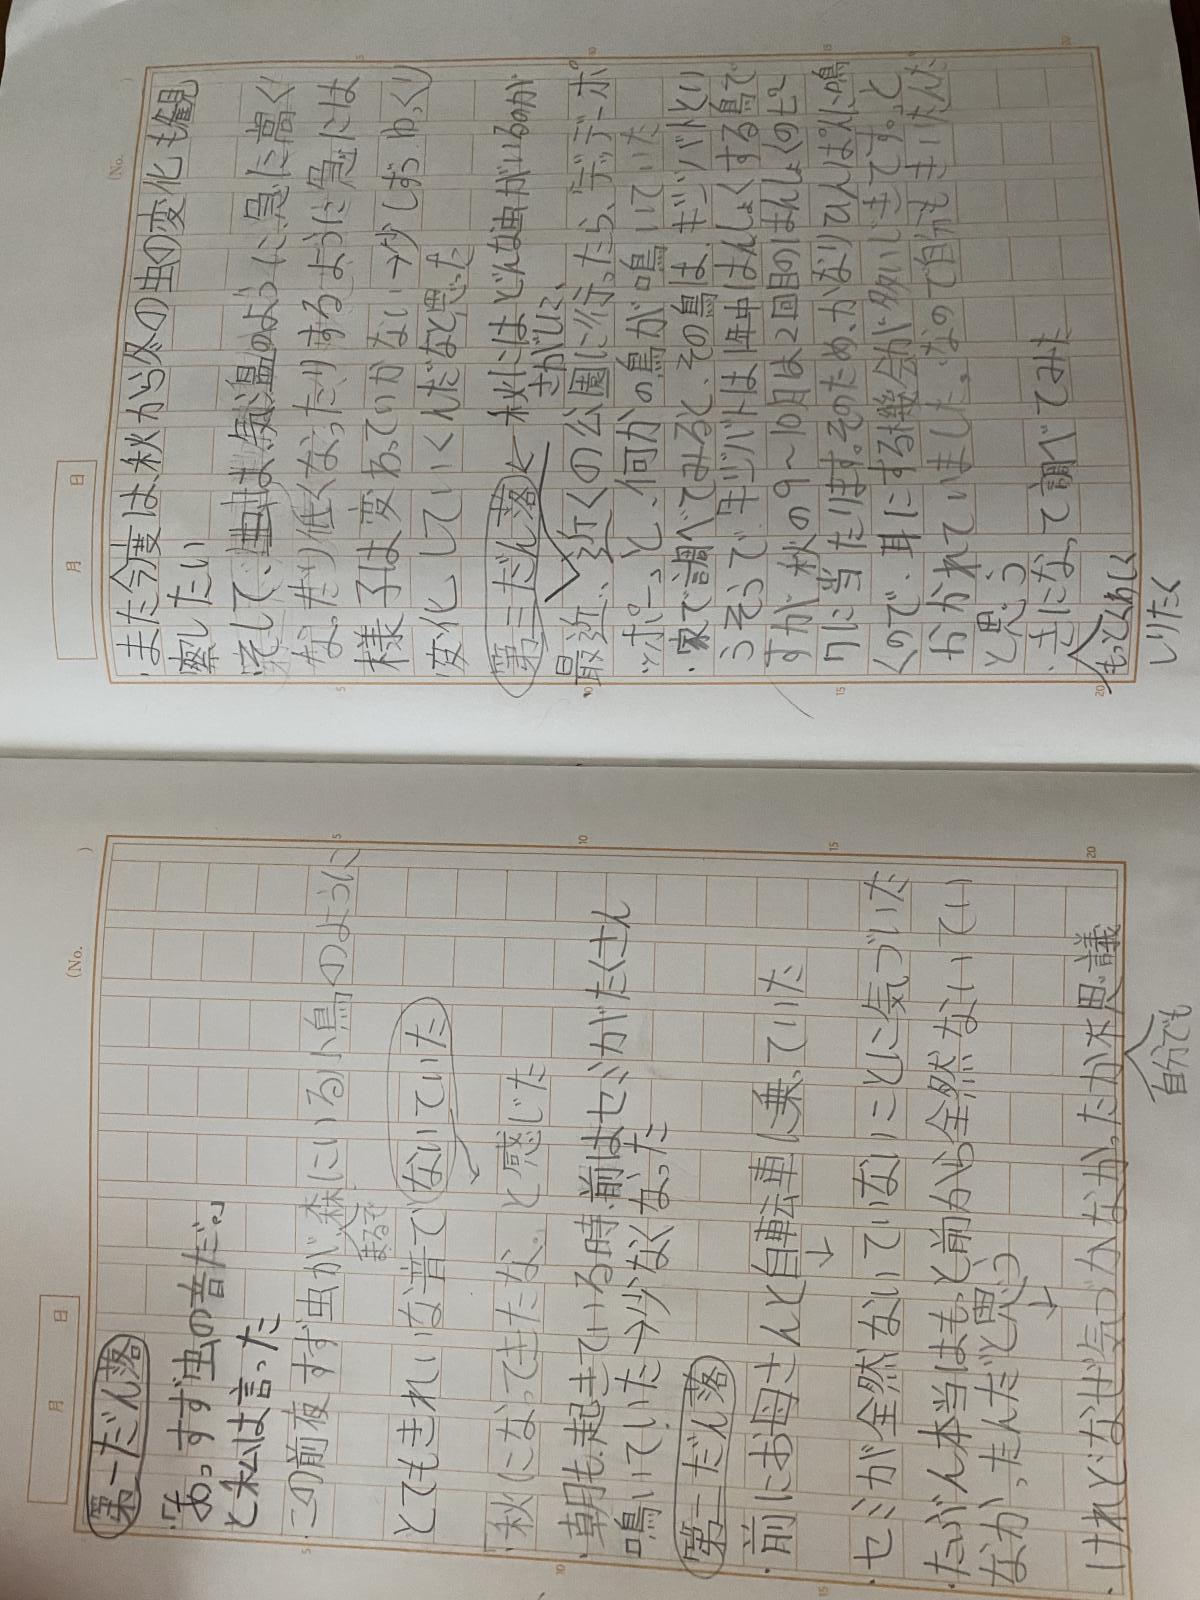 (No.          )
月　日
第一だん落
・「あっすず虫の音だ。」
と私は言った
この前夜すず虫が、森にいる小鳥のように
まるで
とてもきれいな音でないていた
「秋になってきたな。」と感じた
・朝も、起きている時、前はセミがたくさん
鳴いていた→少なくなった
第二だん落
・前にお母さんと自転車に乗っていた
・セミが全然ないていないことに気づいた
・たぶん本当はもっと前から全然ないてい
なかったんだと思う
・けれどなぜ気づかなかったか不思議
自分でも
(No.          )
月　日
・また今度は、秋から冬の虫の変化も観
察したい
・そして、虫は気温のように、急に高く
なったり低くなったりするように急には
様子は変わっていかない→少しずつゆっくり
変化していくんだなと思った
第三だん落 ← 秋にはどんな虫がいるのか
さがしに、
・最近、近くの公園に行ったら、デデーポ
ッポーっと、何かの鳥が鳴いていた
・家で調べてみると、その鳥は、キジバトとい
うそうで、キジバトは1年中はんしょくする鳥で
すが、秋の9〜10月は2回目のはんしょくのピー
クに当たります。そのため、かなりひんぱんに鳴
くので、耳にする機会が多いじきです。と
かかれていました。なので自分もきいたんだ
と思う
・きになって調べてみた
もっとくわしく
しりたく